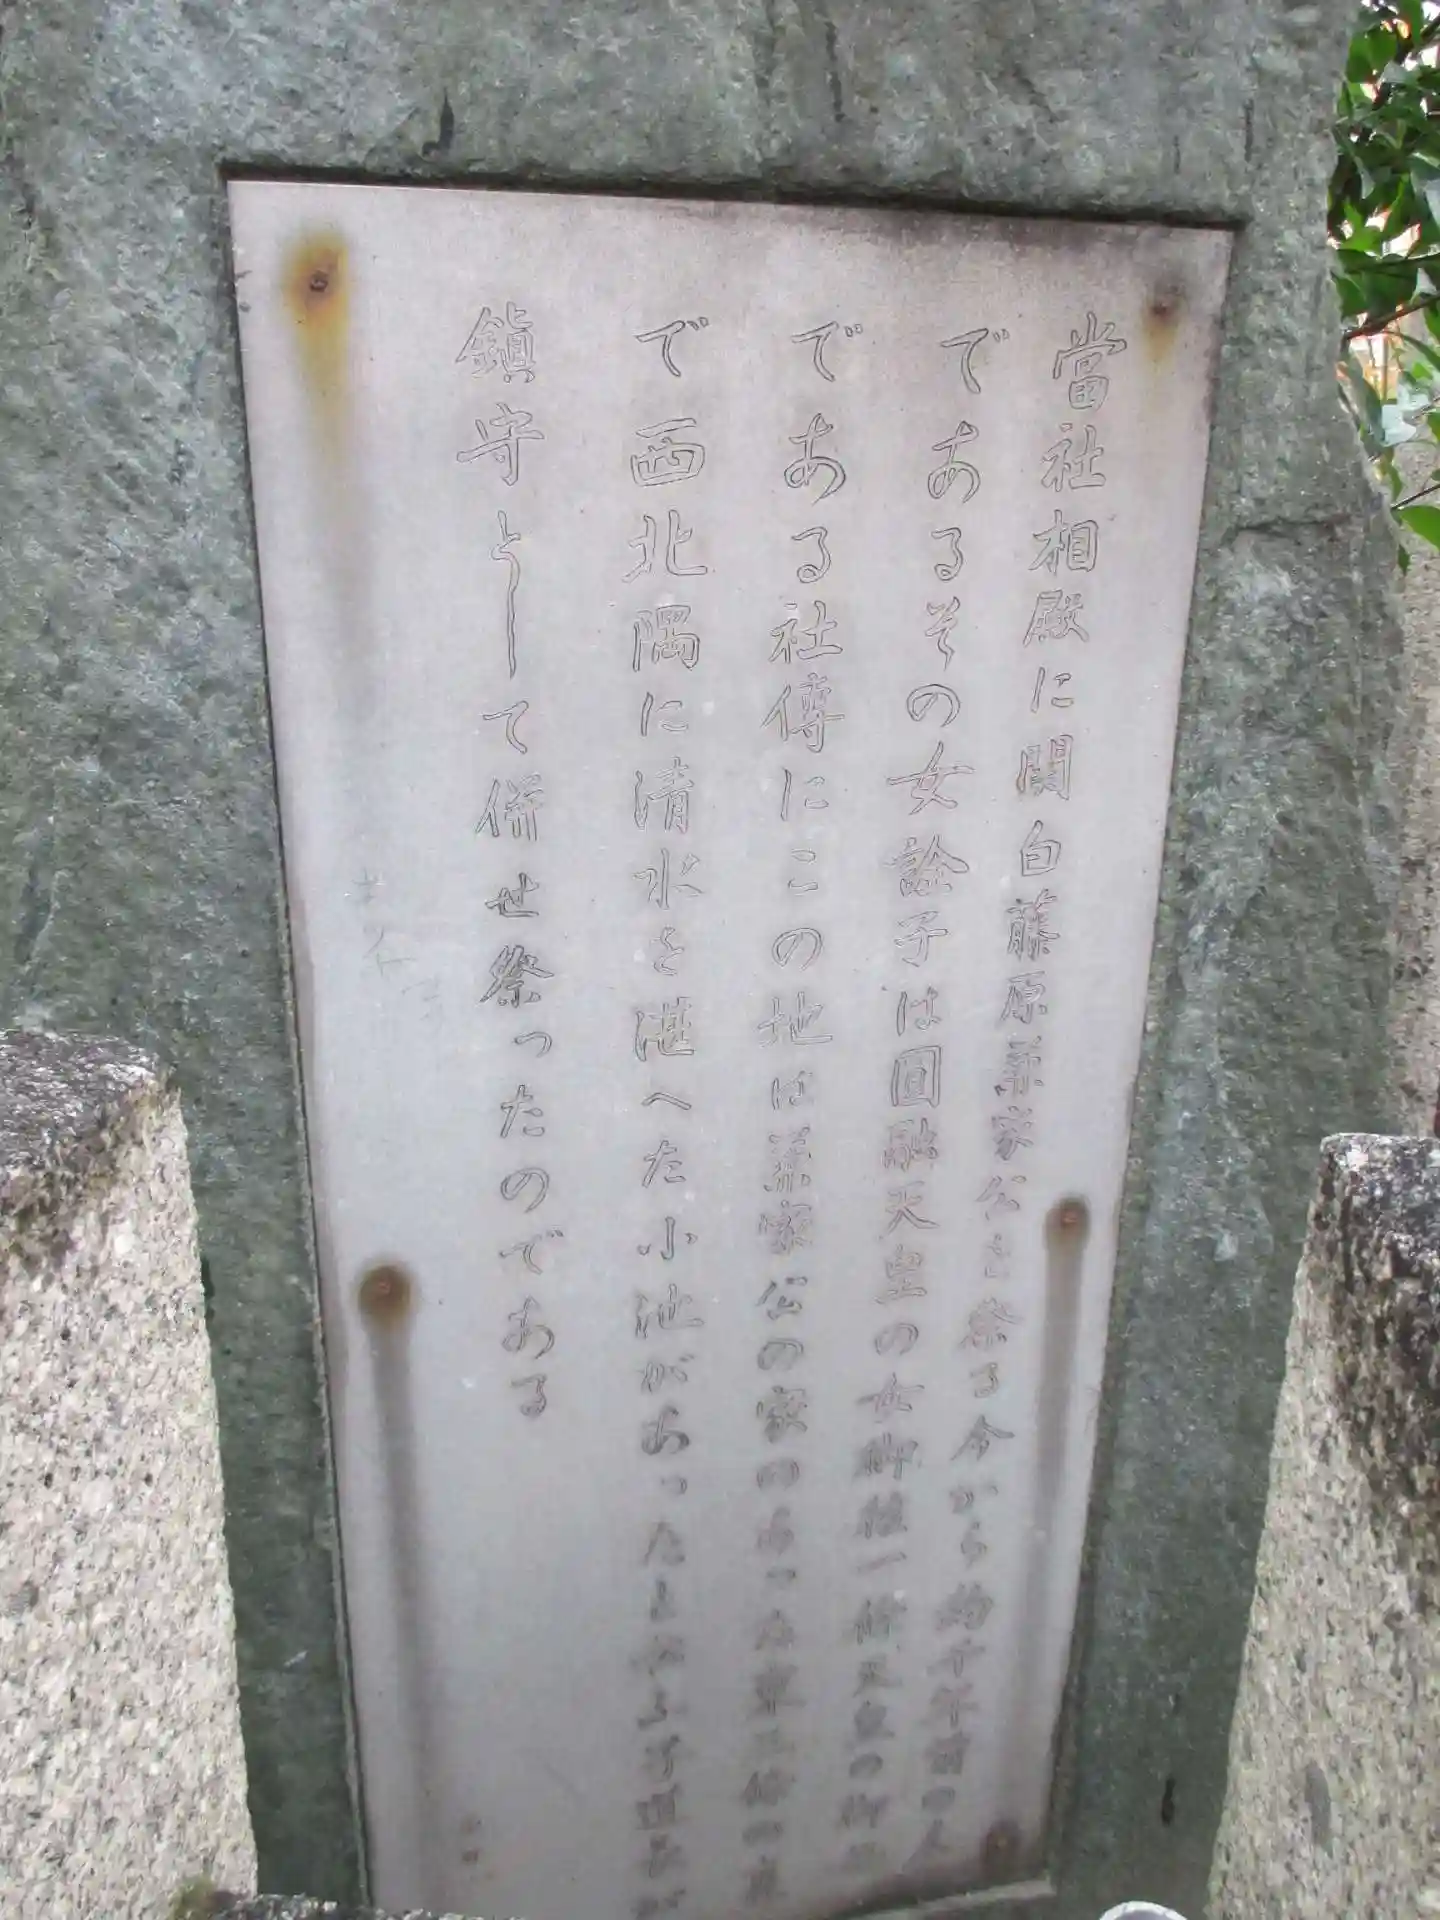 當社相殿に関白藤原兼家公を祭る今から約千年前の人
であるその女詮子は圓融天皇の女御後一條天皇の御
である社傳にこの地は兼家公の家のあった東三條の
で西北隅に清水を湛へた小池があったと
鎮守として併せ祭ったのである